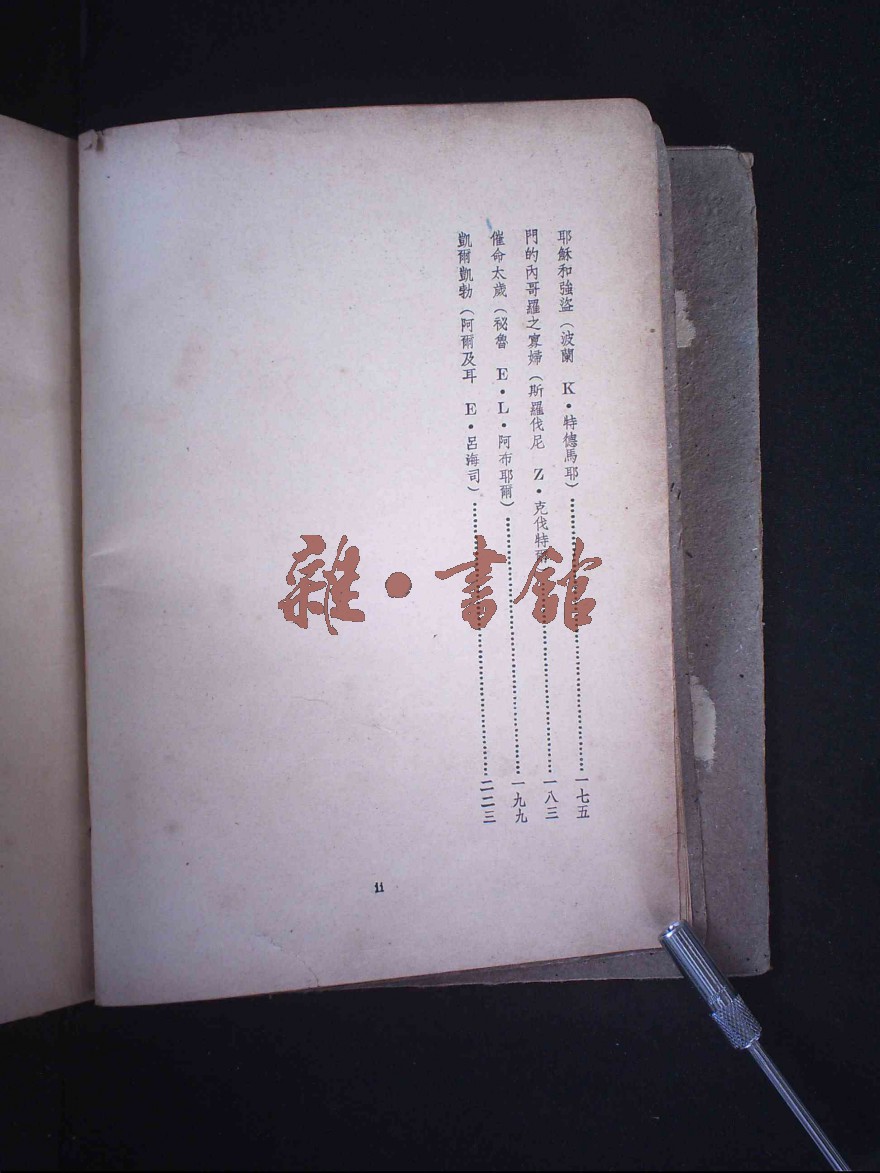 耶穌和強盜（波蘭　K・特德馬耶）……一七五
門的內哥羅之寡婦（斯羅伐尼　Z・克伐特爾……一八三
催命太歲（祕魯　E・L・阿布耶爾）……一九九
凱爾凱勃（阿爾及耳　E・呂海司）……二二三
11
雜・書館